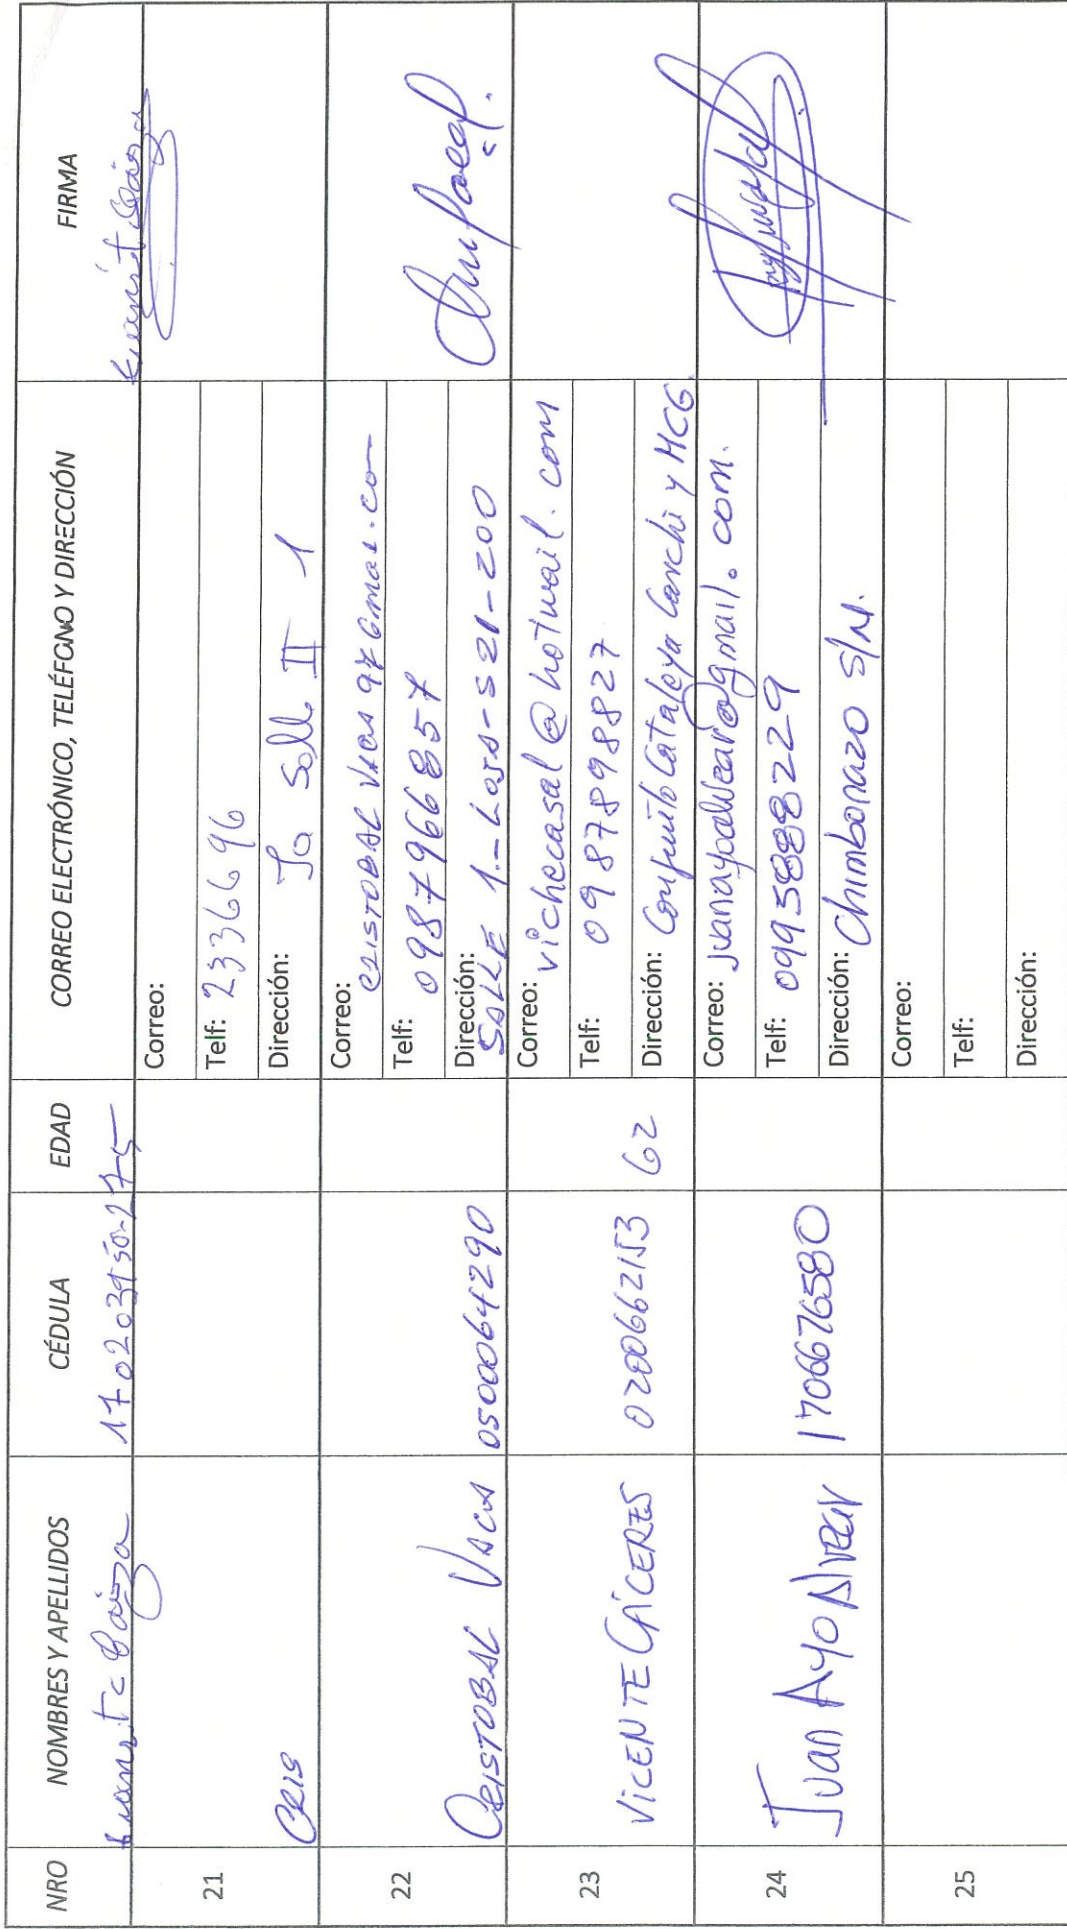 NRO NOMBRES Y APELLIDOS CÉDULA EDAD CORREO ELECTRÓNICO, TELÉFONO Y DIRECCIÓN FIRMA
21
CRIS
Correo:
Telf: 2336696
Dirección: La Salle II 1
22 CRISTOBAL VACA 0500064290
Correo:
Telf: 0987966857
Dirección: SALLE 1.- LOJA - S21-200
23 VICENTE CÁCERES 0200662153 62
Correo: vichecasal@hotmail.com
Telf: 0987898827
Dirección: Conjunto Cataleya Carchi y MCG
24 Juan Ayo Alvear 1706676580
Correo: juanayoalvear@gmail.com.
Telf: 0995888229
Dirección: Chimborazo S/N.
25
Correo:
Telf:
Dirección: